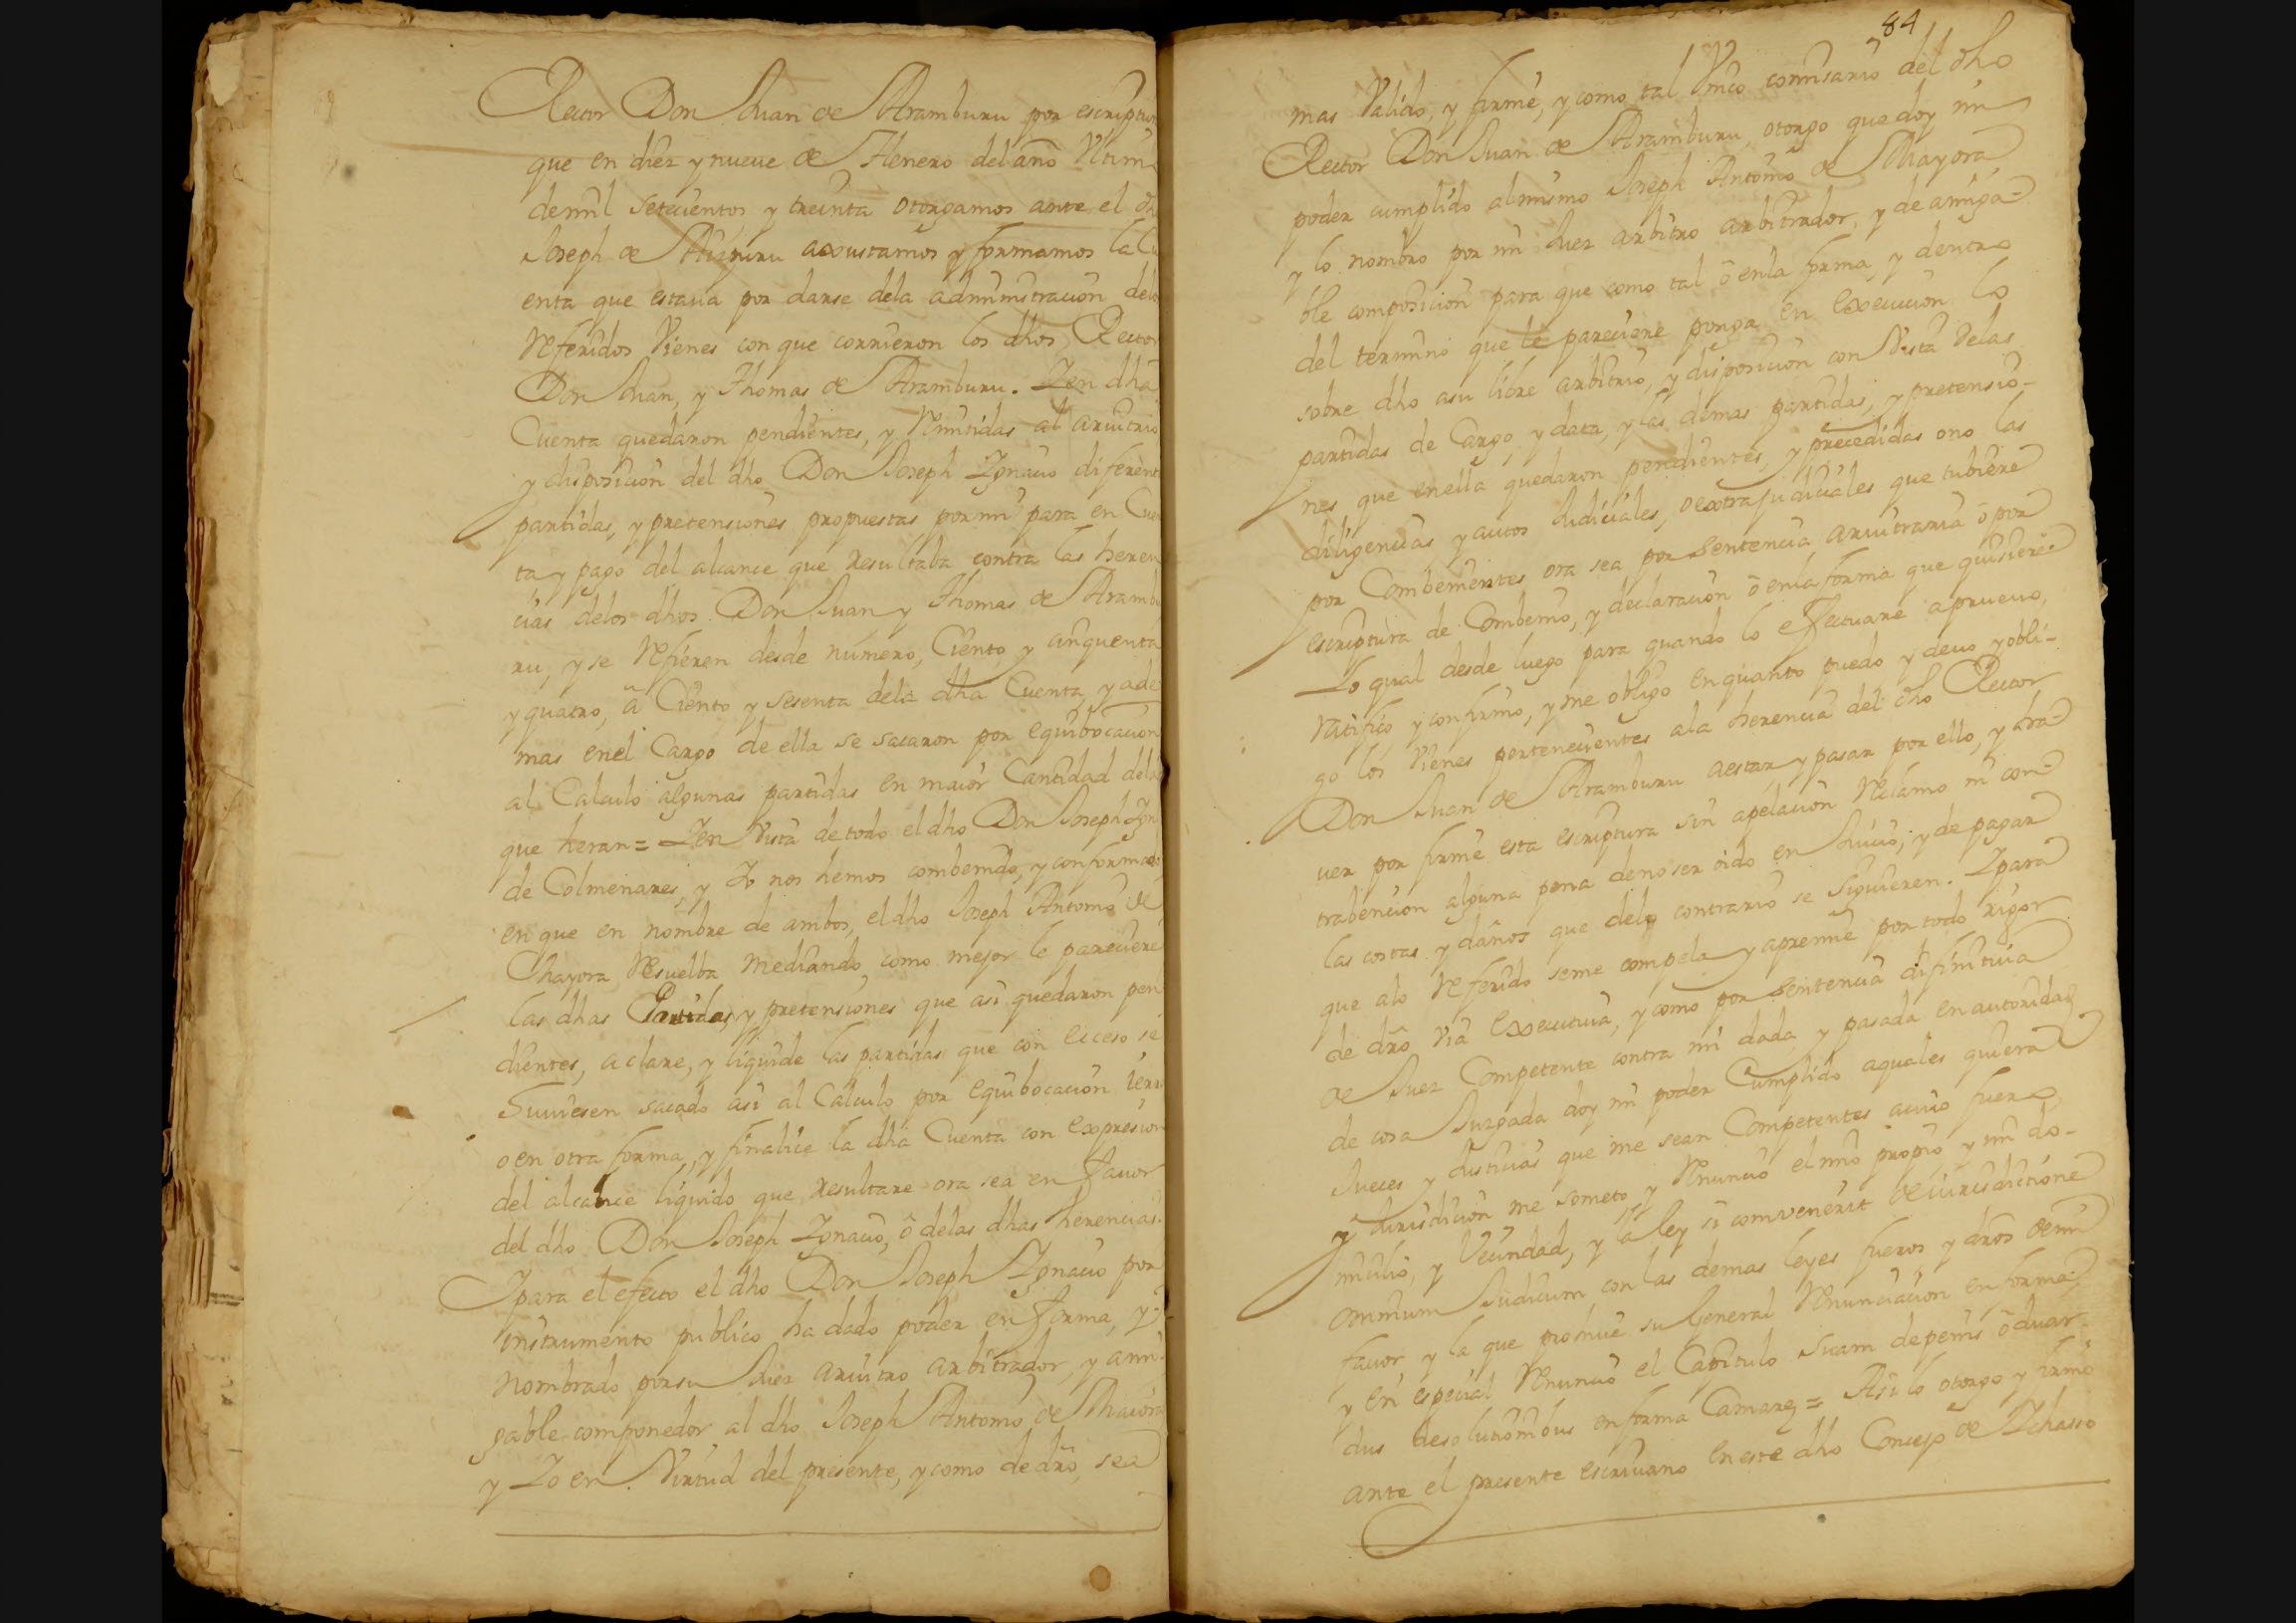 Rector Don Juan de Aramburu por escriptur
que en diez y nueve de Henero del año Ultim
de mil setecientos y treinta otorgamos ante el dh
Joseph de axustamos y formamos la Cu
enta que estaua por darse dela administracion delo
Referidos Vienes con que corrieron los dhos Rector
Don Juan, y Thomas de Aramburu. Y en dha
Cuenta quedaron pendientes, y Remitidas al aruitrio
y disposicion del dho Don Joseph Ignacio diferent
partidas, y pretensiones propuestas por mi para en Cuen
ta y pago del alcance que resultaba contra las heren
cias delos dhos Don Juan y Thomas de Arambu
ru, y se Refieren desde numero, Ciento y cinquenta
y quatro, â Ciento y sesenta dela dha Cuenta, y ade
mas enel Cargo de ella se sacaron por equibocacion
al Calculo algunas partidas en maior Cantidad dela
que heran = Y en Vista de todo el dho Don Joseph Ign
de Colmenares, y Yo nos hemos combenido, y conformado
en que en nombre de ambos, el dho Joseph Antonio de
Mayora Resuelba mediando como mejor le pareciere
las dhas Partidas, y pretensiones que asi quedaron pen
dientes, aclare, y liquide las partidas que con exceso se
huuiesen sacado asi al Calculo por equibocacion ierro
o en otra forma, y finalice la dha Cuenta con expresion
del alcance liquido que resultare ora sea en fauor
del dho Don Joseph Ygnacio, ô delas dhas herencias.
Y para el efecto el dho Don Joseph Ygnacio por
instrumento publico ha dado poder en forma, y
nombrado por su Juez aruitro arbitrador, y ami
gable componedor al dho Joseph Antonio de Maiora
y Yo en Virtud del presente, y como de dro, sea
84
mas Valido, y firme, y como tal Unico comisario del dho
Rector Don Juan de Aramburu, otorgo que doy mi
poder cumplido al mismo Joseph Antonio de Mayora
y lo nombro por mi Juez arbitro arbitrador, y de amiga=
ble composicion para que como tal ô enla forma, y dentro
del termino que le pareciere ponga en execucion lo
sobre dho asu libre arbitrio, y disposicion con Vista delas
partidas de Cargo, y data, y las demas partidas, y pretensio-
nes que enella quedaron pendientes, y precedidas ono las
diligencias y autos Judiciales, o extrajudiciales que tubiere
por Combenientes ora sea por sentencia aruitraria ô por
escriptura de Combenio, y declaracion ô enla forma que quisiere=
Lo qual desde luego para quando lo efectuare apruevo,
Ratifico y confirmo, y me obligo en quanto puedo y deuo y obli-
go los Vienes pertenecientes ala herencia del dho Rector
Don Juan de Aramburu aestar y pasar por ello, y ha=
uer por firme esta escriptura sin apelacion Reclamo ni con=
trabencion alguna pena deno ser oido en Juicio, y de pagar
las costas y daños que delo contrario se siguieren. Y para
que alo Referido seme compela y apremie por todo rigor
de dro Via executiua, y como por sentencia difinitiua
de Juez Competente contra mi dada y pasada en autoridad
de cosa Juzgada doy mi poder Cumplido aquales quiera
Jueces y Justicias que me sean Competentes acuio fuero,
y Jurisdicion me someto, y Renuncio el mio propio y mi do-
micilio, y Vecindad, y la ley si convenerit de iurisdictione
omnium Judicum con las demas leyes fueros y dros de mi
fauor y la que prohiue su General Renunciacion en forma;
y en especial Renuncio el Capitulo suam de penis ô duar-
dus de solutionibus en forma Camarę = Asi lo otorgo y firmo
ante el presente escriuano en este dho Concejo de Ychasso